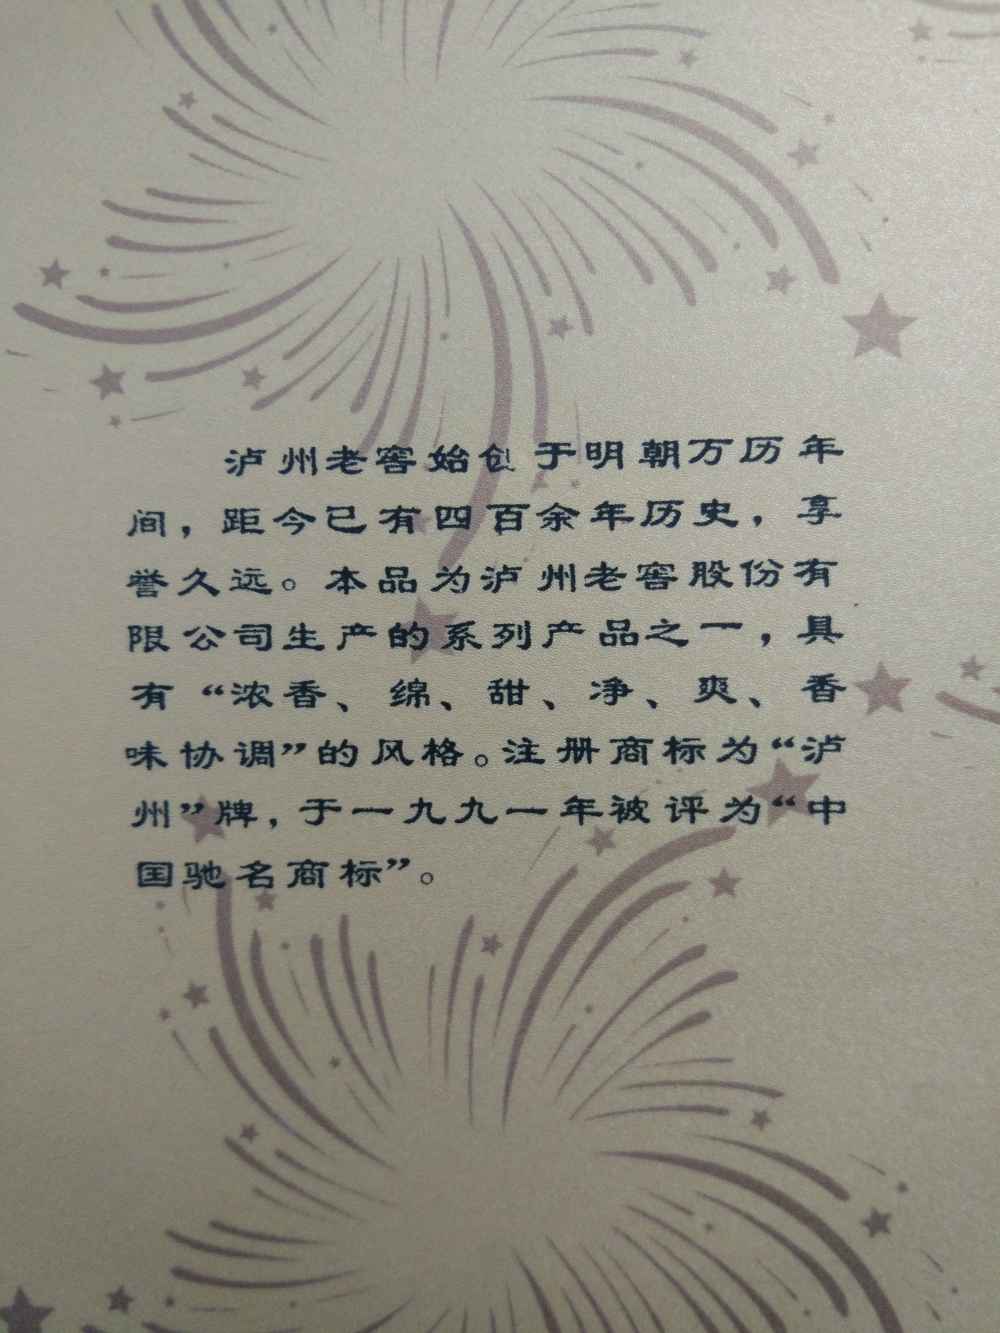 泸州老窖始创于明朝万历年
间，距今已有四百余年历史，享
誉久远。本品为泸州老窖股份有
限公司生产的系列产品之一，具
有“浓香、绵、甜、净、爽、香
味协调”的风格。注册商标为“泸
州”牌，于一九九一年被评为“中
国驰名商标”。